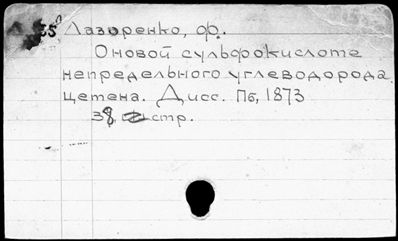 Лазоренко, Ф.
О новой сульфокислоте
непредельного углеводорода
цетена. Дисс. Пб, 1873
38 стр.